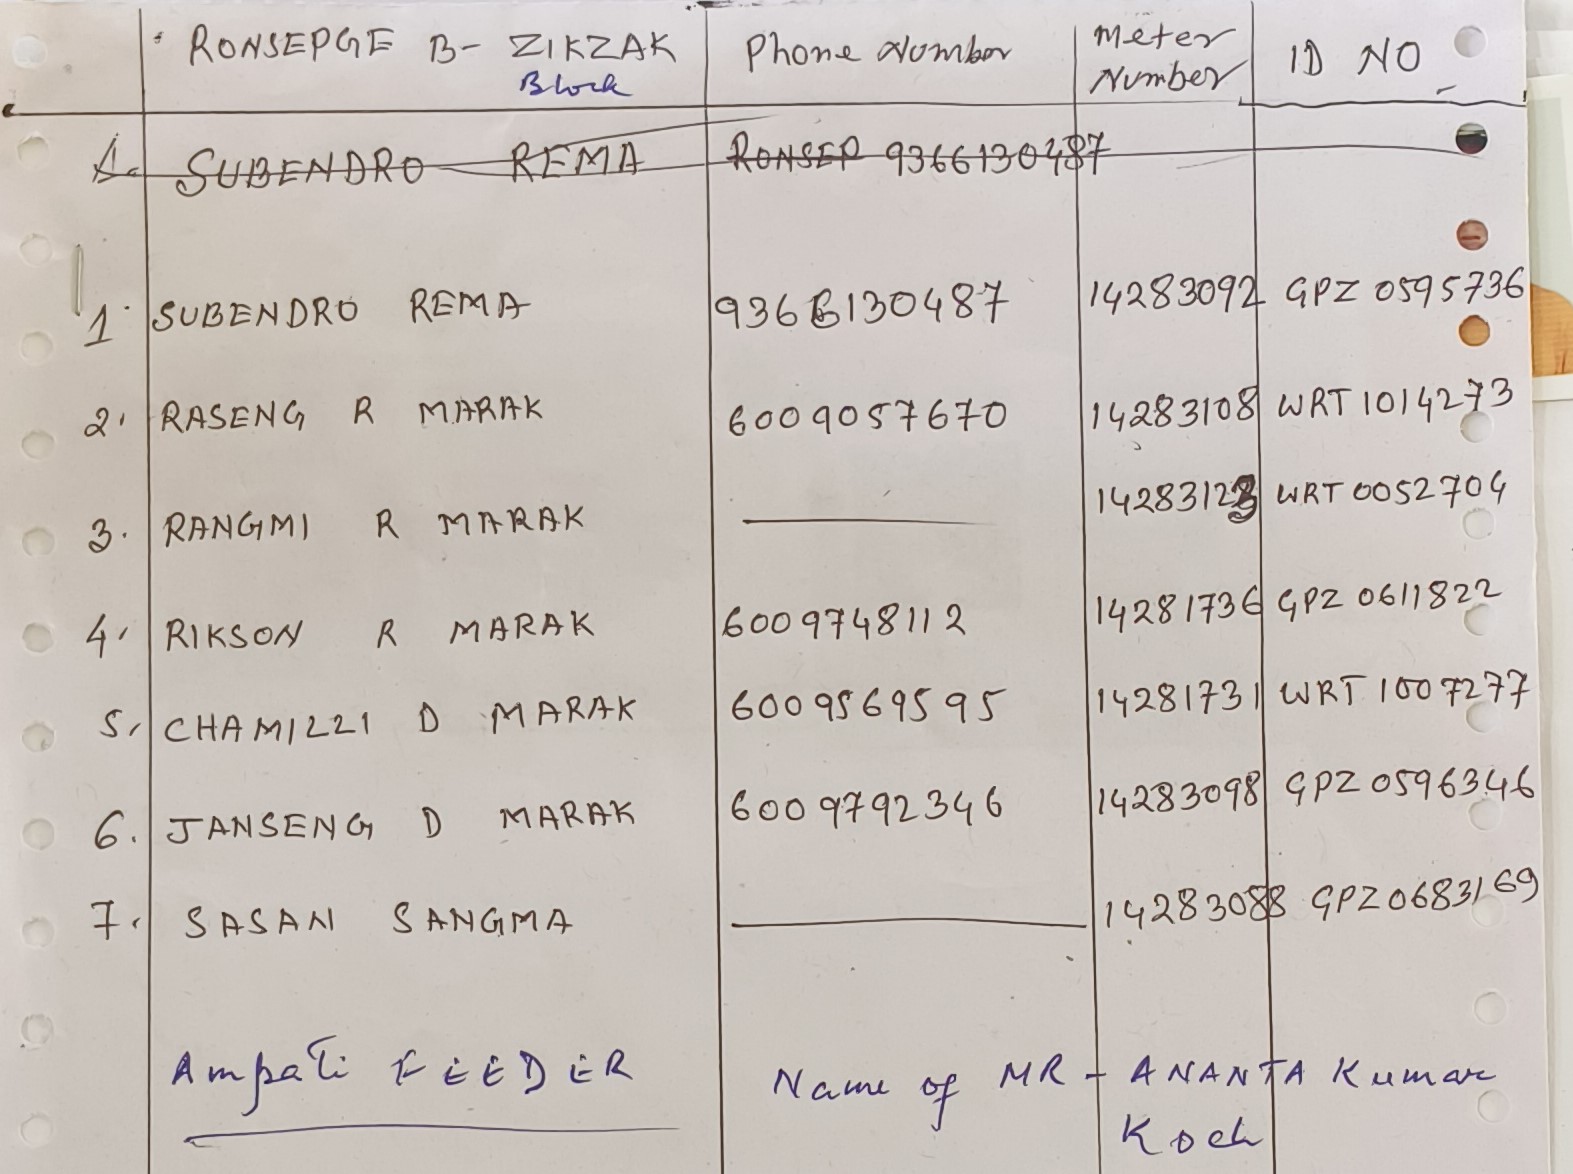 RONSEPGE B- ZIKZAK Phone Number Meter Number ID NO
Block
1. SUBENDRO REMA RONSEP 9366130487
1. SUBENDRO REMA 9366130487 14283092 GPZ 0595736
2. RASENG R MARAK 6009057670 14283108 WRT 1014273
3. RANGMI R MARAK 14283123 WRT 0052704
4. RIKSON R MARAK 6009748112 14281736 GPZ 0611822
5. CHAMIZZI D MARAK 6009569595 14281731 WRT 1007277
6. JANSENG D MARAK 6009792346 14283098 GPZ 0596346
7. SASAN SANGMA 14283088 GPZ0683169
Ampati FEEDER Name of MR - ANANTA Kumar
Koch